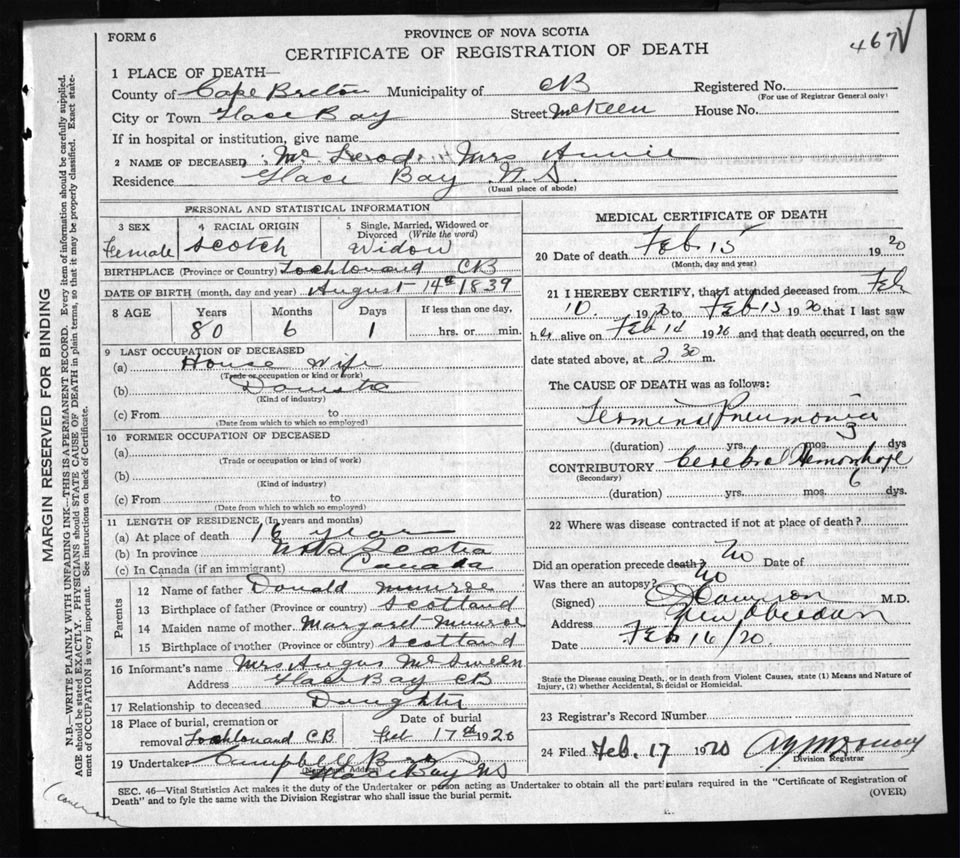 FORM 6
PROVINCE OF NOVA SCOTIA
CERTIFICATE OF REGISTRATION OF DEATH
467
1 PLACE OF DEATH—
County of Cape Breton Municipality of CB Registered No.
(For use of Registrar General only)
City or Town Glace Bay Street McKeen House No.
If in hospital or institution, give name
2 NAME OF DECEASED Mrs Annie
Residence Glace Bay N.S.
(Usual place of abode)
PERSONAL AND STATISTICAL INFORMATION
3 SEX Female
4 RACIAL ORIGIN Scotch
5 Single, Married, Widowed or Divorced (Write the word) Widow
BIRTHPLACE (Province or Country) Lochlomand CB
DATE OF BIRTH (month, day and year) August 14th 1839
8 AGE Years Months Days If less than one day,
80 6 1 hrs. or min.
9 LAST OCCUPATION OF DECEASED
(a) House wife
(Trade or occupation or kind of work)
(b)
(Kind of industry)
(c) From to
(Date from which to which so employed)
10 FORMER OCCUPATION OF DECEASED
(a)
(Trade or occupation or kind of work)
(b)
(Kind of industry)
(c) From to
(Date from which to which so employed)
11 LENGTH OF RESIDENCE (In years and months)
(a) At place of death 16 years
(b) In province Nova Scotia
(c) In Canada (if an immigrant) Canada
Parents
12 Name of father Donald Munroe
13 Birthplace of father (Province or country) Scotland
14 Maiden name of mother Margaret Munroe
15 Birthplace of mother (Province or country) Scotland
16 Informant's name Mrs Angus McSween
Address Glace Bay CB
17 Relationship to deceased Daughter
18 Place of burial, cremation or Date of burial
removal Lochlomand CB Feb 17th 1920
19 Undertaker Campbell
Glace Bay NS
MEDICAL CERTIFICATE OF DEATH
20 Date of death Feb 15 1920
(Month, day and year)
21 I HEREBY CERTIFY, that I attended deceased from Feb
10. 1920 to Feb 15 1920 that I last saw
her alive on Feb 14 1920 and that death occurred, on the
date stated above, at 2 30 m.
The CAUSE OF DEATH was as follows:
Terminal Pneumonia
(duration) yrs. mos. 3 dys
CONTRIBUTORY Cerebral Hemorrhage
(Secondary)
(duration) yrs. mos. 6 dys.
22 Where was disease contracted if not at place of death?
Did an operation precede death? No Date of
Was there an autopsy? No
(Signed) M.D.
Address New Aberdeen
Date Feb 16/20
State the Disease causing Death, or in death from Violent Causes, state (1) Means and Nature of
Injury, (2) whether Accidental, Suicidal or Homicidal.
23 Registrar's Record Number
24 Filed Feb. 17 1920
Division Registrar
SEC. 46—Vital Statistics Act makes it the duty of the Undertaker or person acting as Undertaker to obtain all the particulars required in the "Certificate of Registration of
Death" and to fyle the same with the Division Registrar who shall issue the burial permit. (OVER)
MARGIN RESERVED FOR BINDING
N.B.—WRITE PLAINLY, WITH UNFADING INK—THIS IS A PERMANENT RECORD. Every item of information should be carefully supplied.
AGE should be stated EXACTLY. PHYSICIANS should STATE CAUSE OF DEATH in plain terms, so that it may be properly classified. Exact state-
ment of OCCUPATION is very important. See instructions on back of Certificate.